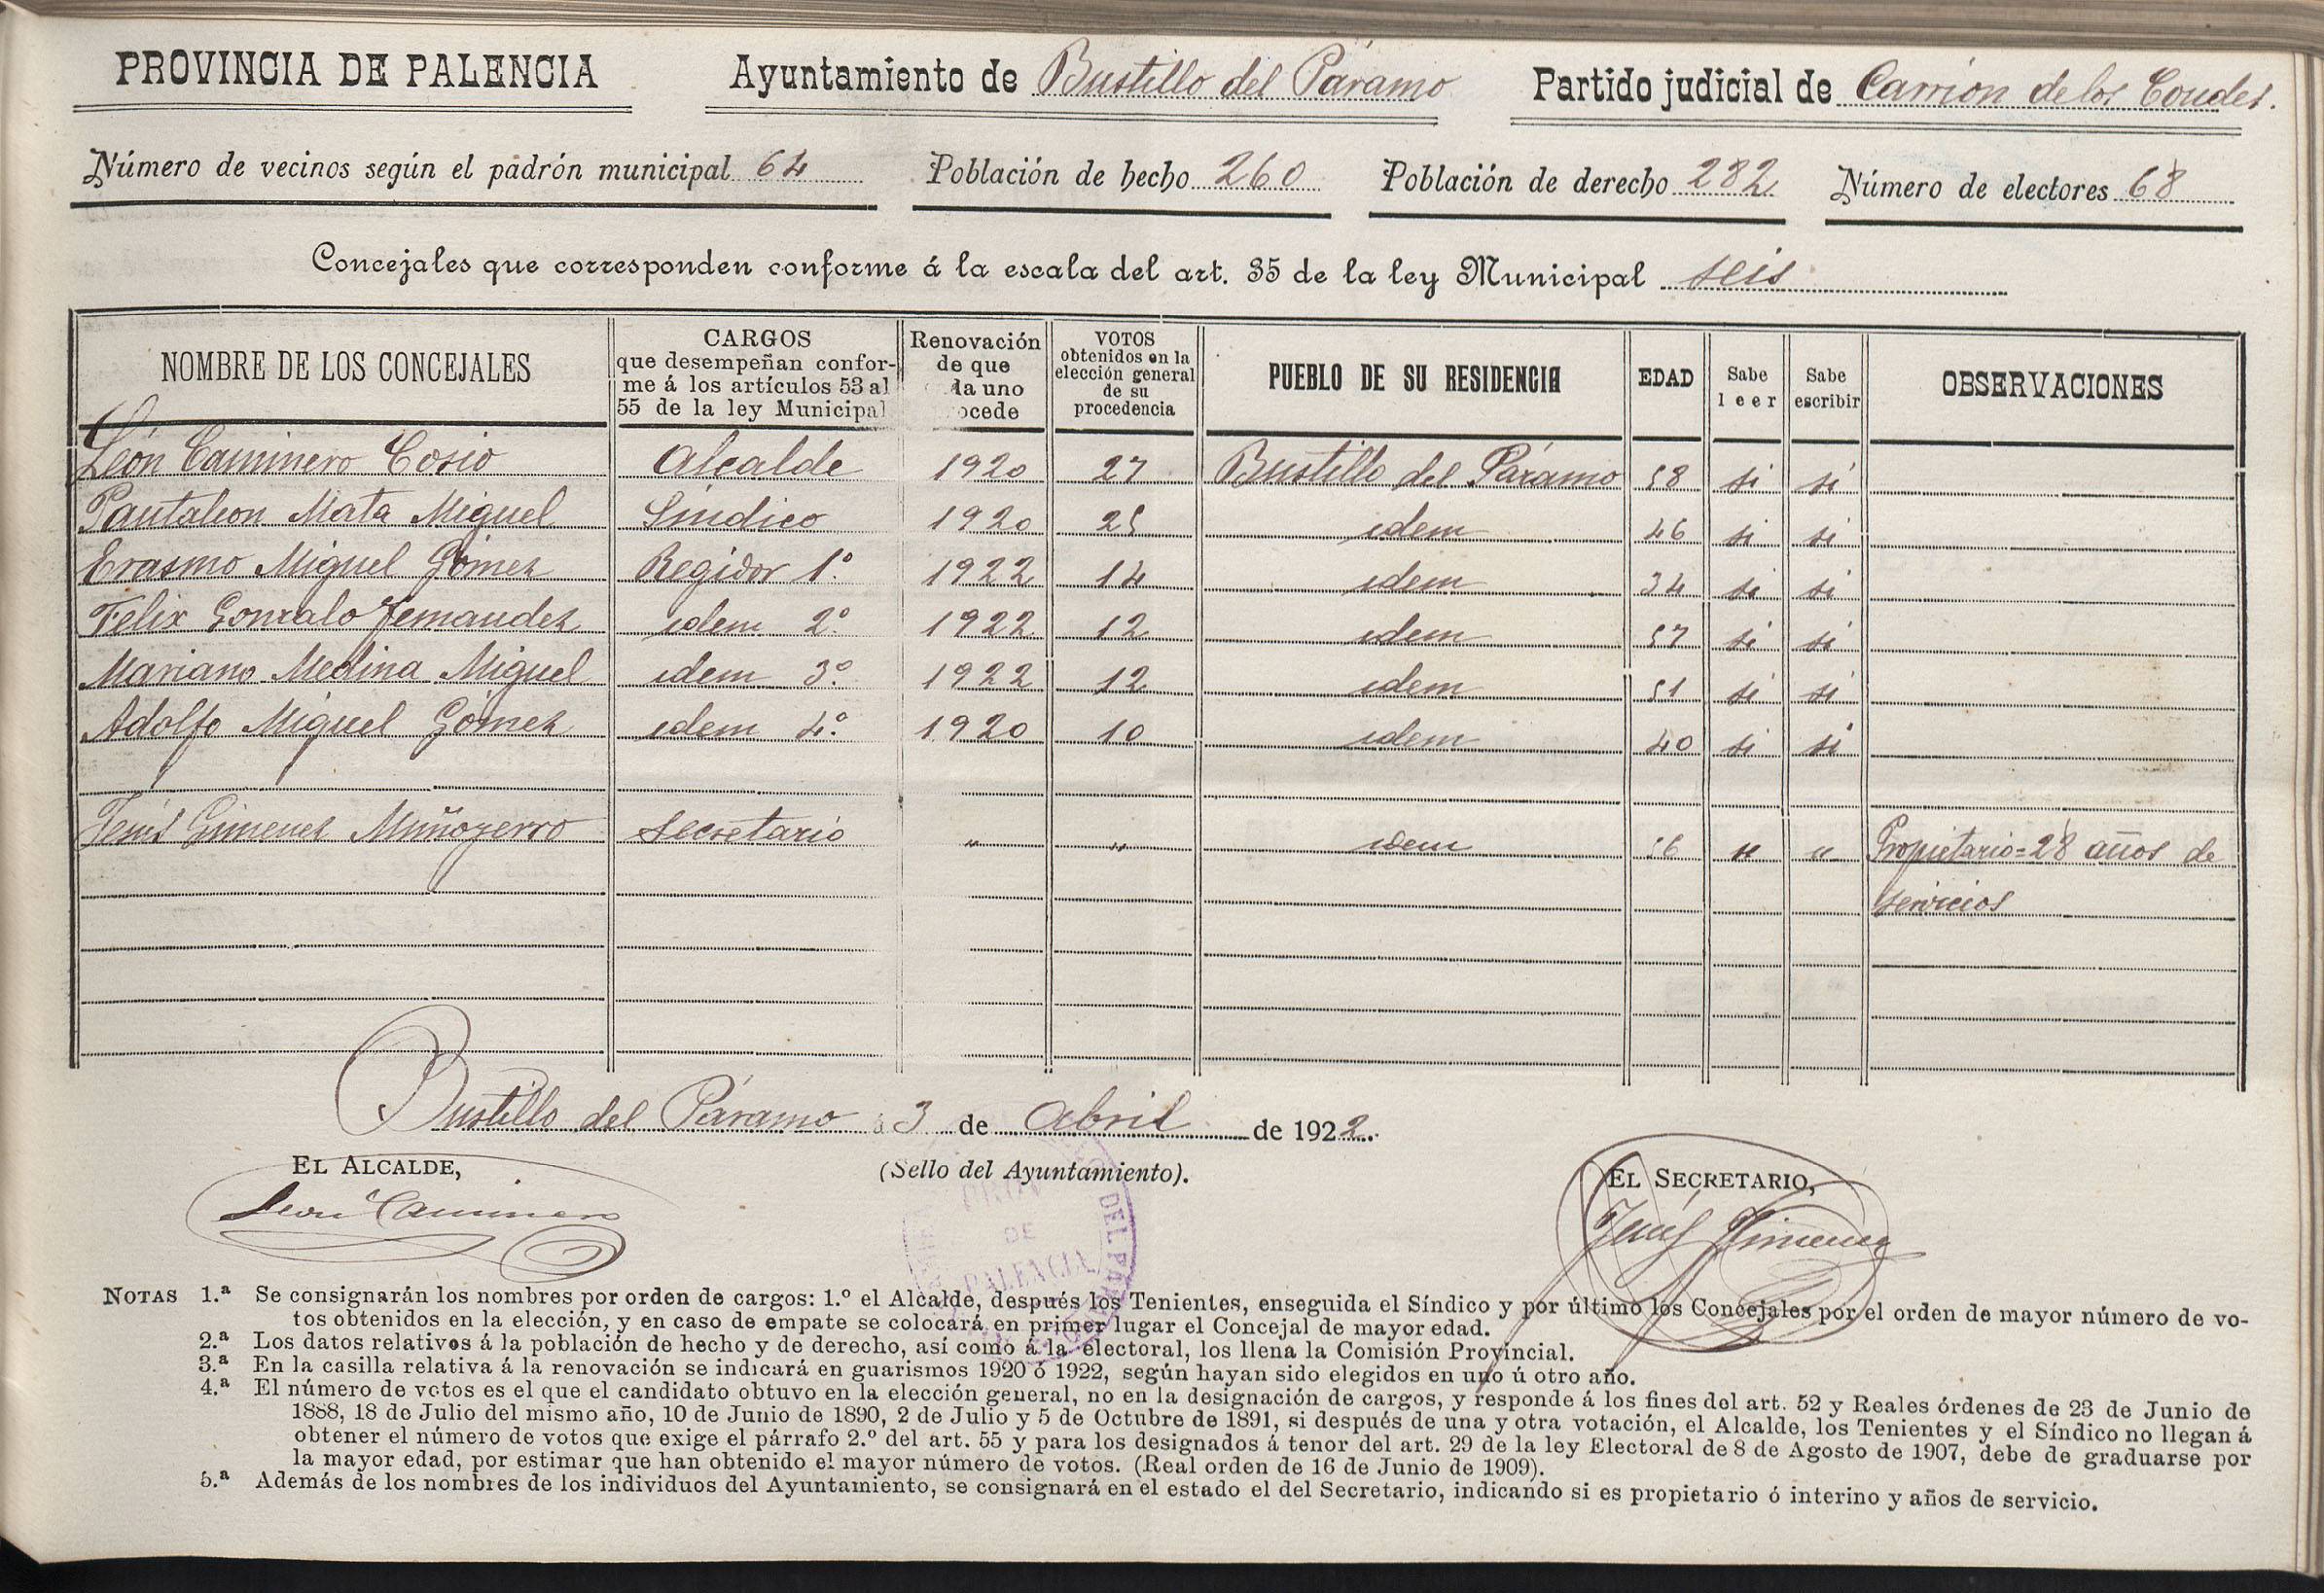 PROVINCIA DE PALENCIA Ayuntamiento de Bustillo del Páramo Partido judicial de Carrión de los Condes.
Número de vecinos según el padrón municipal 64 Población de hecho 260 Población de derecho 282 Número de electores 68
Concejales que corresponden conforme á la escala del art. 35 de la ley Municipal seis
NOMBRE DE LOS CONCEJALES CARGOS que desempeñan confor-me á los artículos 53 al 55 de la ley Municipal Renovación de que da uno ocede VOTOS obtenidos en la elección general de su procedencia PUEBLO DE SU RESIDENCIA EDAD Sabe leer Sabe escribir OBSERVACIONES
León Caminero Cosio Alcalde 1920 27 Bustillo del Páramo 58 si si
Pantaleon Mata Miguel Síndico 1920 25 idem 46 si si
Erasmo Miguel Gómez Regidor 1º 1922 14 idem 34 si si
Felix Gonzalo Fernandez idem 2º 1922 12 idem 57 si si
Mariano Medina Miguel idem 3º 1922 12 idem 51 si si
Adolfo Miguel Gómez idem 4º 1920 10 idem 40 si si
Jesús Gimenez Muñozerro Secretario " " idem 56 " " Propietario=28 años de
servicios
Bustillo del Páramo á 3 de Abril de 1922.
EL ALCALDE, (Sello del Ayuntamiento). EL SECRETARIO,
León Caminero Jesús Gimenez
DE
PALENCIA
NOTAS 1.ª Se consignarán los nombres por orden de cargos: 1.º el Alcalde, después los Tenientes, enseguida el Síndico y por último los Concejales por el orden de mayor número de vo-
tos obtenidos en la elección, y en caso de empate se colocará en primer lugar el Concejal de mayor edad.
2.ª Los datos relativos á la población de hecho y de derecho, así como á la electoral, los llena la Comisión Provincial.
3.ª En la casilla relativa á la renovación se indicará en guarismos 1920 ó 1922, según hayan sido elegidos en uno ú otro año.
4.ª El número de votos es el que el candidato obtuvo en la elección general, no en la designación de cargos, y responde á los fines del art. 52 y Reales órdenes de 23 de Junio de
1888, 18 de Julio del mismo año, 10 de Junio de 1890, 2 de Julio y 5 de Octubre de 1891, si después de una y otra votación, el Alcalde, los Tenientes y el Síndico no llegan á
obtener el número de votos que exige el párrafo 2.º del art. 55 y para los designados á tenor del art. 29 de la ley Electoral de 8 de Agosto de 1907, debe de graduarse por
la mayor edad, por estimar que han obtenido el mayor número de votos. (Real orden de 16 de Junio de 1909).
5.ª Además de los nombres de los individuos del Ayuntamiento, se consignará en el estado el del Secretario, indicando si es propietario ó interino y años de servicio.